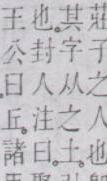 莊子之人也
其字从之土
也。封人注曰
王公曰丘。諸